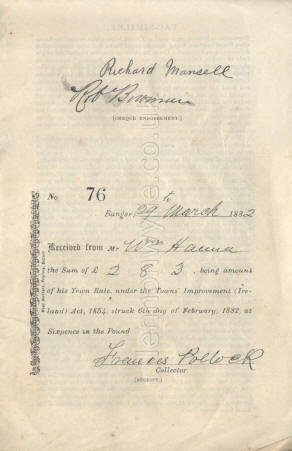 Richard Mansell
Rob Bowman
(CHEQUE ENDORSEMENT.)
No 76
Bangor 29th March 1882
Received from Mr Wm Hanna
the Sum of £ 2 8 3. being amount
of his Town Rate, under the Towns' Improvement (Ire-
land) Act, 1854, struck 6th day of February, 1882, at
Sixpence in the Pound
Francis Pollock
Collector.
(RECEIPT.)